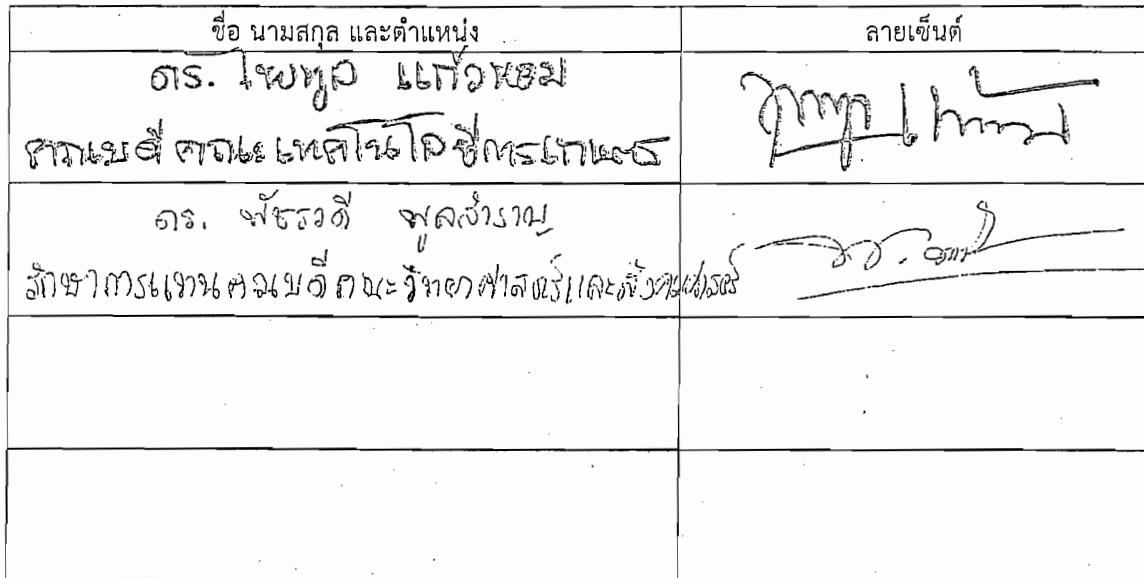 ชื่อ นามสกุล และตำแหน่ง
ลายเซ็นต์
ดร. ไพฑูล แก้วหอม
คณบดี คณะเทคโนโลยีการเกษตร
ดร. พัชรวดี พูลสำราญ
รักษาการแทนคณบดีคณะวิทยาศาสตร์และสังคมศาสตร์